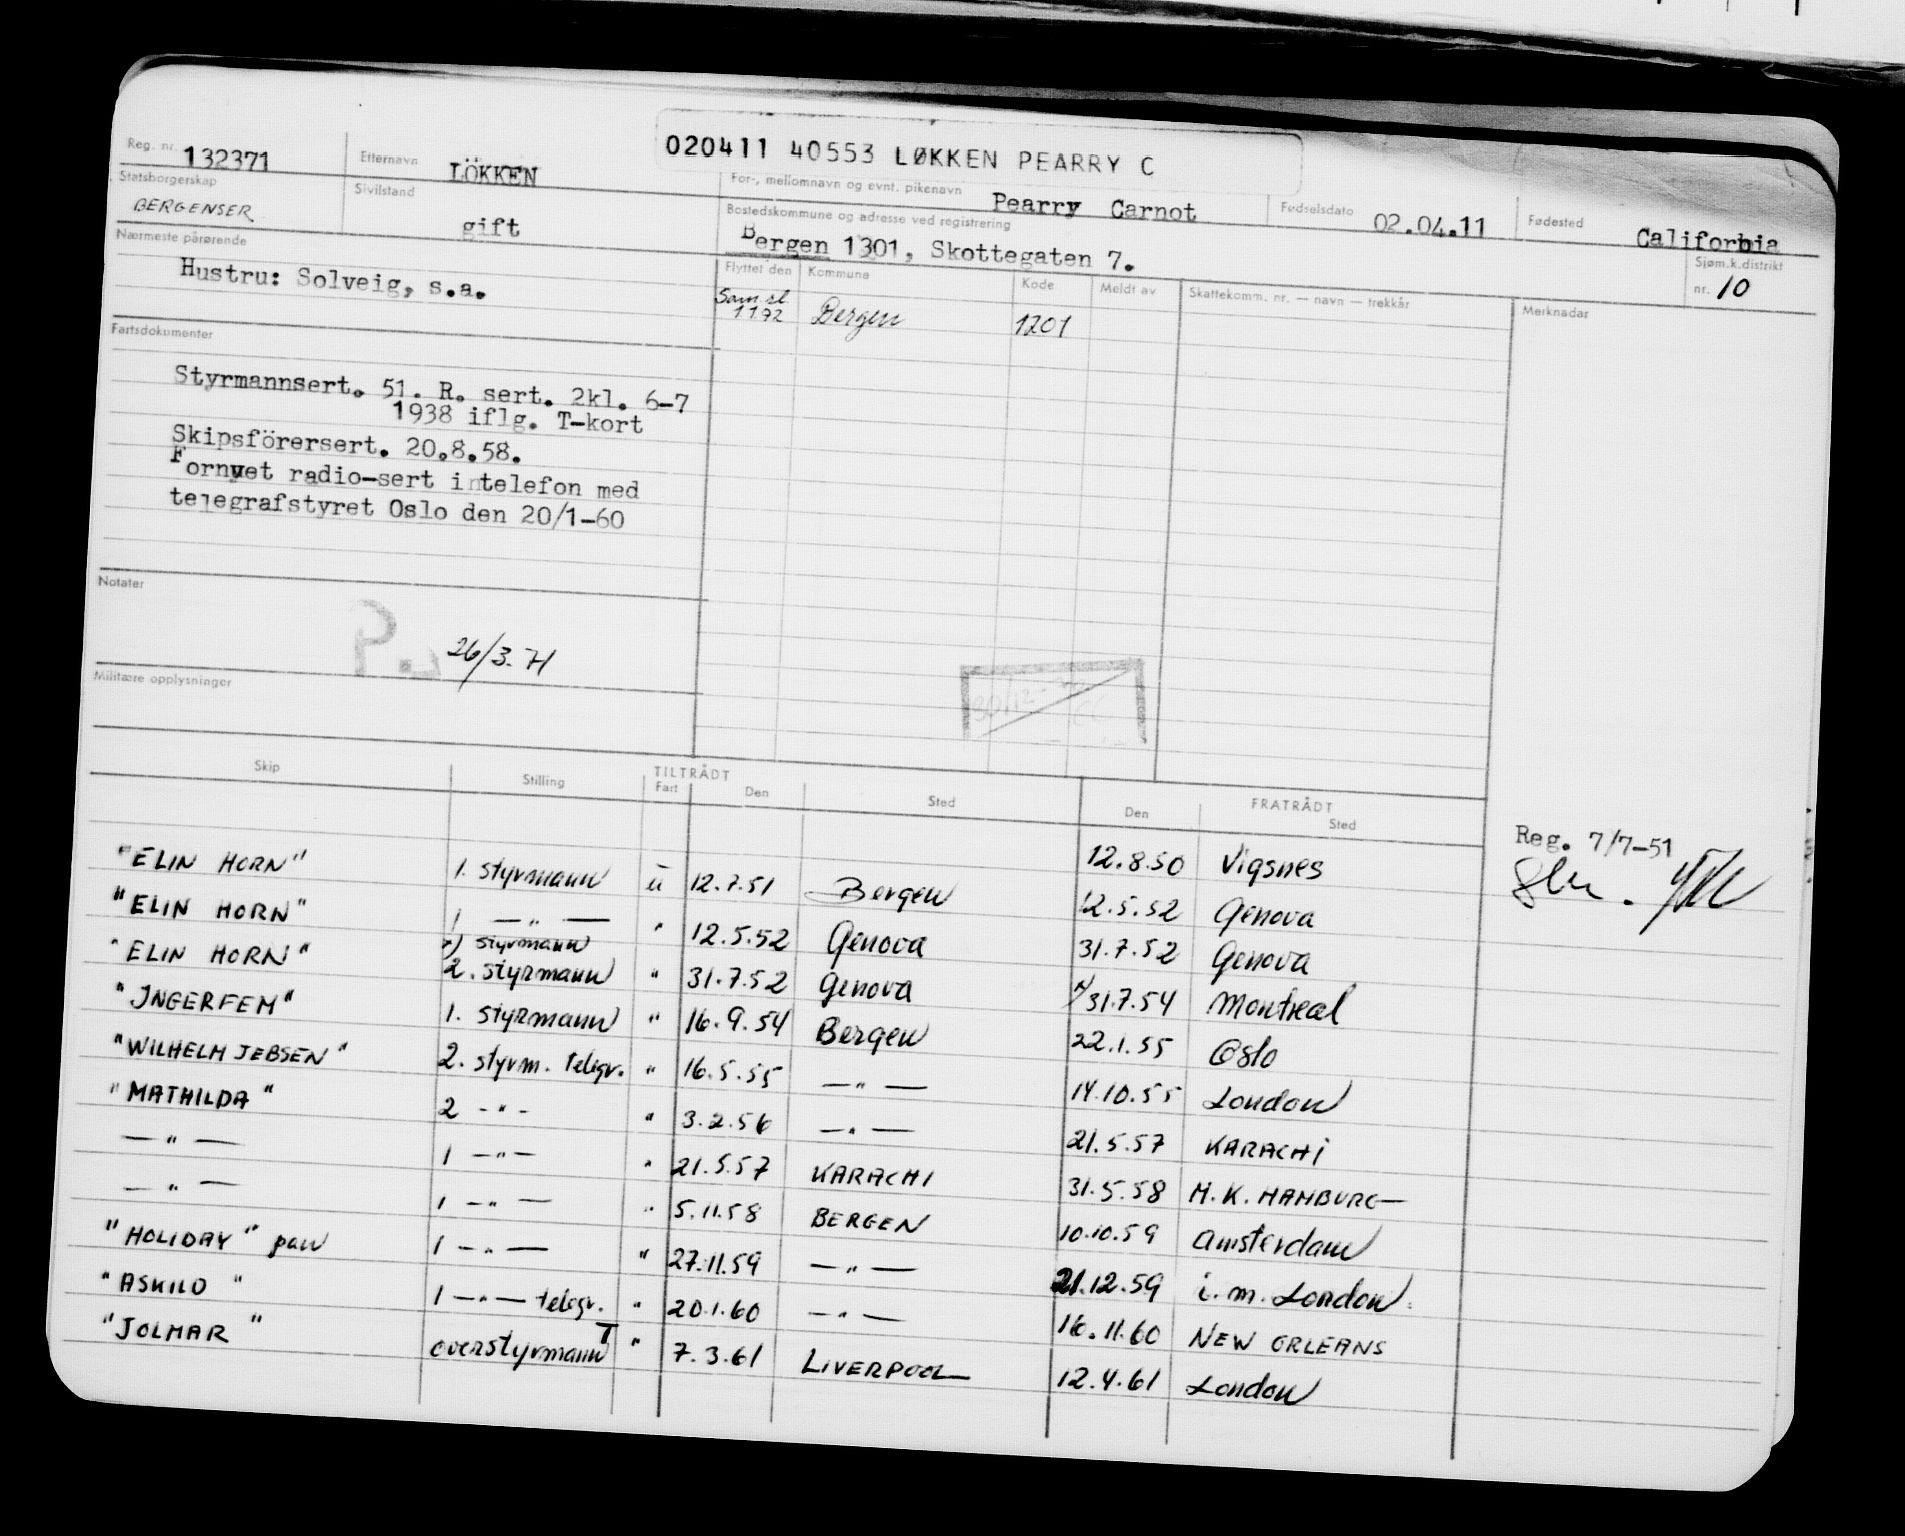 020411 40553 LØKKEN PEARRY C
Reg. nr. 132371
Etternavn LÖKKEN
For-, mellomnavn og evnt. pikenavn Pearry Carnot
Fødselsdato 02.04.11
Fødested California
Statsborgerskap BERGENSER
Sivilstand gift
Bostedskommune og adresse ved registrering
Bergen 1301, Skottegaten 7.
Sjøm.k.distrikt nr. 10
Nærmeste pårørende
Hustru: Solveig, s.a.
Flyttet den Kommune Kode Meldt av Skattekomm. nr. — navn — trekkår Merknadar
1172 Bergen 1201
Fartsdokumenter
Styrmannsert. 51. R. sert. 2kl. 6-7
1938 iflg. T-kort
Skipsförersert. 20.8.58.
Fornyet radio-sert i telefon med
telegrafstyret Oslo den 20/1-60
Notater
26/3.71
Militære opplysninger
Skip Stilling TILTRÅDT Fart Den Sted FRATRÅDT Den Sted
Reg. 7/7-51
12.8.50 Vigsnes
"ELIN HORN" 1. styrmann u 12.7.51 Bergen 12.5.52 Genova
"ELIN HORN" 1 — " — " 12.5.52 Genova 31.7.52 Genova
"ELIN HORN" styrmann 2. styrmann " 31.7.52 Genova 31.7.54 Montreal
"INGERFEM" 1. styrmann " 16.9.54 Bergen 22.1.55 Oslo
"WILHELM JEBSEN" 2. styrm. telegr. " 16.5.55 — " — 14.10.55 London
"MATHILDA" 2 - " - " 3.2.56 — " — 21.5.57 KARACHI
— " — 1 — " — " 21.5.57 KARACHI 31.5.58 H.K. HAMBURG
— " — 1 — " — " 5.11.58 BERGEN 10.10.59 Amsterdam
"HOLIDAY" pan 1 — " — " 27.11.59 — " — 21.12.59 i.m. London
"ASKILD" 1 — " — telegr. " 20.1.60 — " — 16.11.60 NEW ORLEANS
"JOLMAR" overstyrmann T " 7.3.61 LIVERPOOL 12.4.61 London